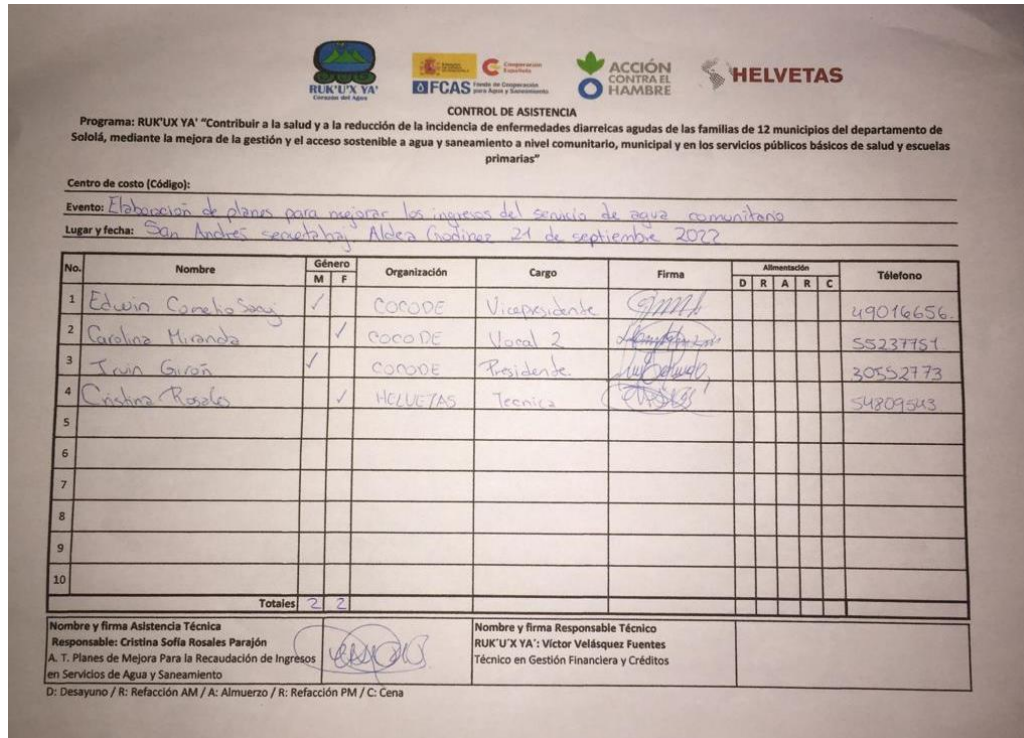 RUK'U'X YA'
Corazón del Agua
Cooperación Española
FCAS Fondo de Cooperación para Agua y Saneamiento
ACCIÓN CONTRA EL HAMBRE
HELVETAS
CONTROL DE ASISTENCIA
Programa: RUK'UX YA' "Contribuir a la salud y a la reducción de la incidencia de enfermedades diarreicas agudas de las familias de 12 municipios del departamento de
Sololá, mediante la mejora de la gestión y el acceso sostenible a agua y saneamiento a nivel comunitario, municipal y en los servicios públicos básicos de salud y escuelas
primarias"
Centro de costo (Código):
Evento: Elaboración de planes para mejorar los ingresos del servicio de agua comunitario
Lugar y fecha: San Andrés semetabaj. Aldea Godinez 21 de septiembre 2022
No. Nombre Género Organización Cargo Firma Alimentación Télefono
M F D R A R C
1 Edwin Cornelio ✓ COCODE Vicepresidente 49016656.
2 Carolina Miranda ✓ COCODE Vocal 2 55237751
3 Irvin Girón ✓ COCODE Presidente 30552773
4 Cristina Rosales ✓ HELVETAS Tecnica 54809543
5
6
7
8
9
10
Totales 2 2
Nombre y firma Asistencia Técnica
Responsable: Cristina Sofía Rosales Parajón
A. T. Planes de Mejora Para la Recaudación de Ingresos
en Servicios de Agua y Saneamiento
Nombre y firma Responsable Técnico
RUK'U'X YA': Víctor Velásquez Fuentes
Técnico en Gestión Financiera y Créditos
D: Desayuno / R: Refacción AM / A: Almuerzo / R: Refacción PM / C: Cena